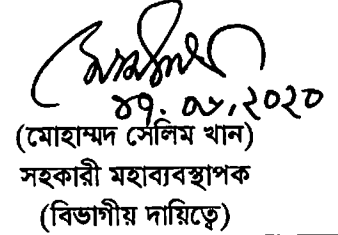 ২০২০
(মোহাম্মদ সেলিম খান)
সহকারী মহাব্যবস্থাপক
(বিভাগীয় দায়িত্বে)